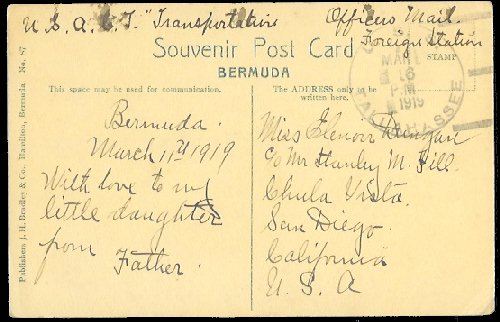 U.S.A.C.T. "Transportation
Officers Mail.
Foreign Station
Souvenir Post Card
BERMUDA
STAMP
MAR
6
P.M
1919
TALLAHASSEE
This space may be used for communication.
The ADDRESS only to be
written here.
Publishers J. H. Bradley & Co. Hamilton, Bermuda No. 87
Bermuda.
March 11th 1919
With love to my
little daughter
from
Father.
Miss Elenoir
c/o Mr Stanley M. Gill.
Chula Vista.
San Diego.
California
U. S. A